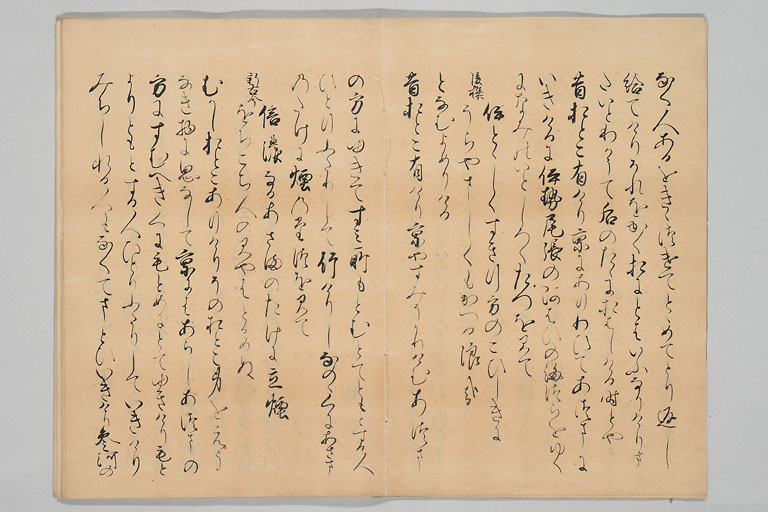 なく人あるをきゝつけてとゝめてとり返し
給てけりそれをかくおにとはいふなりけりま
たいとわかうて后のたゝにおはしける時とや
昔おとこ有けり京にありわひてあつまに
いきけるに伊勢尾張のあはひの海つらをゆく
になみのいとしろくたつを見て
いとゝしくすき行方のこひしきに
後撰 うらやましくもかへる浪哉
となむよめりける
昔おとこ有けり京やすみうかりけむあつま
の方にゆきてすみ所もとむとてともとする人
ひとりふたりして行けりしなのゝくにあさま
のたけに煙のたつを見て
信濃なるあさまのたけに立煙
新古今 をちこち人の見やはとかめぬ
むかしおとこありけりそのおとこ身をえう
なき物に思なして京にはあらしあつまの
方にすむへきくにもとめにとてゆきけりもと
よりともとする人ひとりふたりしていきけり
みちしれる人もなくてまとひいきけり参河の